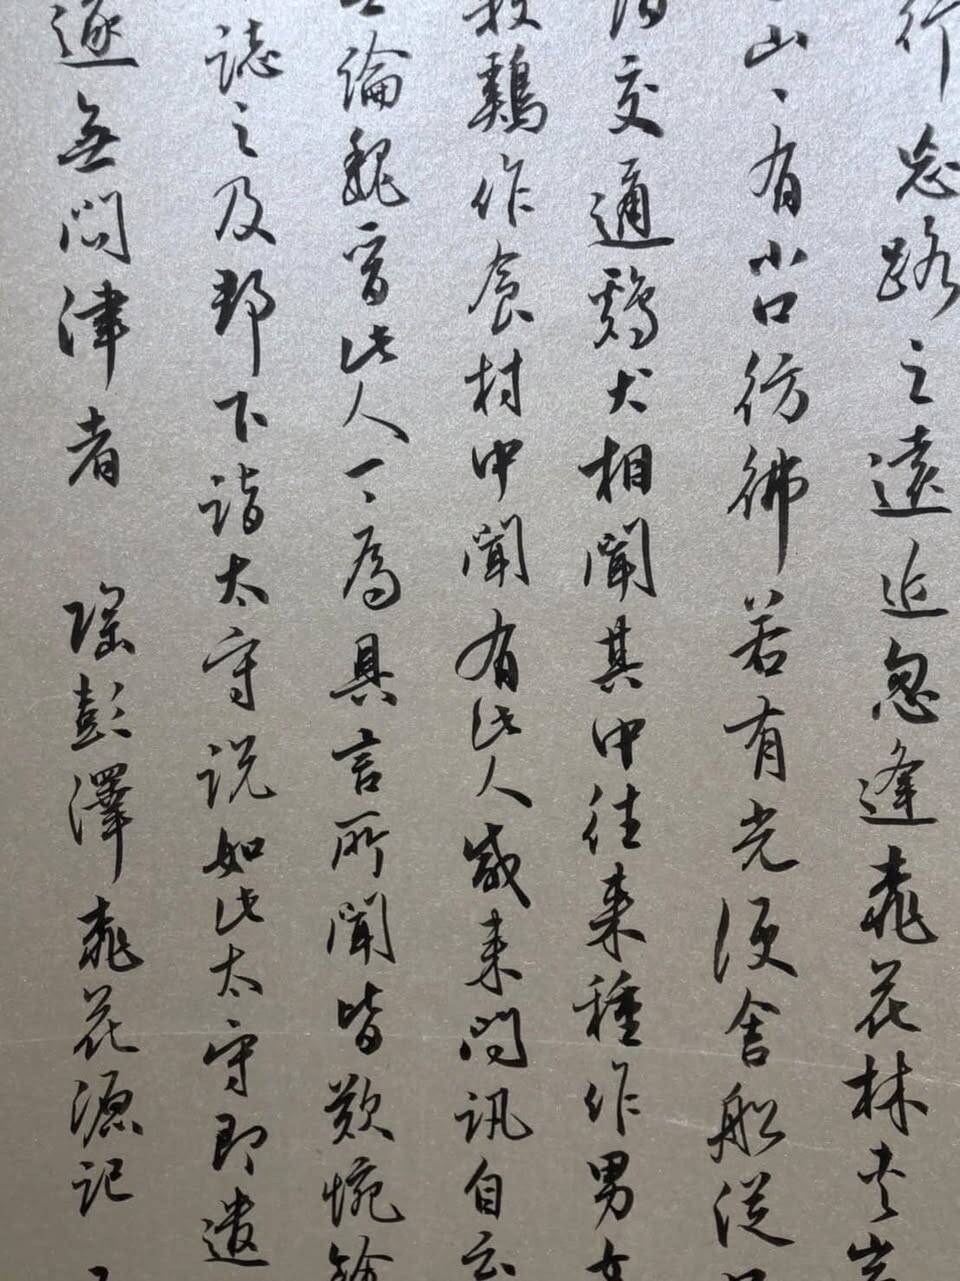 行忘路之遠近忽逢桃花林夾岸
山、有小口彷彿若有光便舍船従
交通鷄犬相聞其中往来種作男女
殺鷄作食村中聞有此人咸来問訊自云
論魏晋此人一、為具言所聞皆歎惋餘
誌之及郡下詣太守説如此太守即遣
遂無問津者 陶彭澤桃花源記